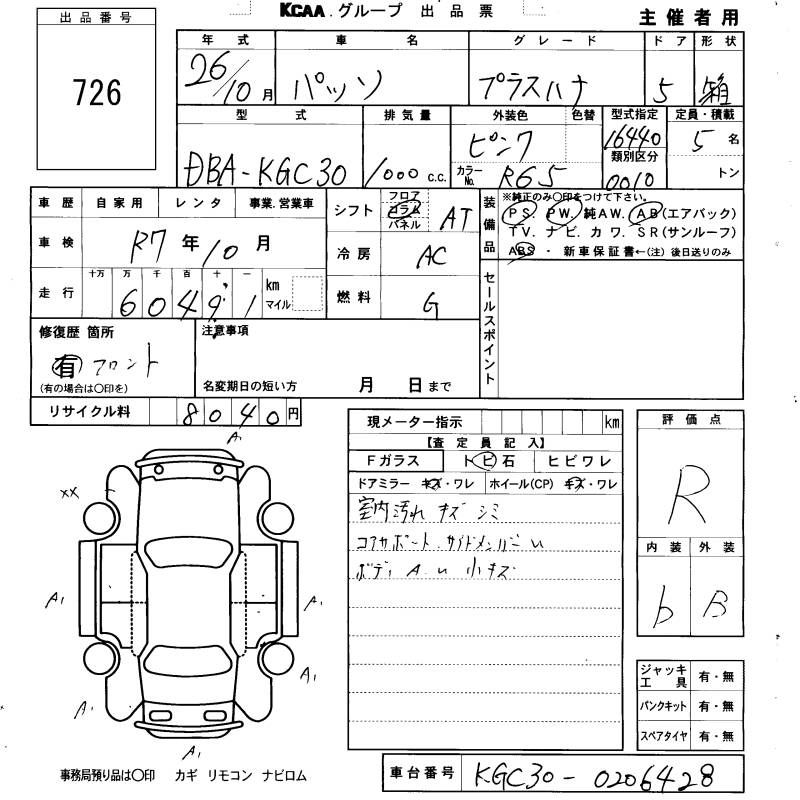 KCAA.グループ 出品票
主催者用
出品番号
726
年式 車名 グレード ドア 形状
26/10月 パッソ プラスハナ 5 箱
型式 排気量 外装色 色替 型式指定 定員・積載
DBA-KGC30 1000 c.c. ピンク 16440 5名
カラーNo. R65 類別区分 0010 トン
車歴 自家用 レンタ 事業.営業車
車検 R7年10月
走行 十万 万 千 百 十 一 km マイル
6 0 4 9 1
シフト フロア コラム パネル AT
冷房 AC
燃料 G
装備品 ※純正のみ○印をつけて下さい。
PS PW. 純AW. AB(エアバック)
TV. ナビ. カワ. SR(サンルーフ)
ABS ・ 新車保証書←(注) 後日送りのみ
セールスポイント
修復歴 箇所
有 フロント
(有の場合は○印を)
注意事項
名変期日の短い方 月 日まで
リサイクル料 8 0 4 0 円
現メーター指示 km
【査定員記入】
Fガラス トビ石 ヒビワレ
ドアミラー キズ・ワレ ホイール(CP) キズ・ワレ
室内汚れ キズ シミ
コアサポート.サイドメンバーU
ボディ A.U 小キズ
評価点
R
内装 外装
b B
ジャッキ工具 有・無
パンクキット 有・無
スペアタイヤ 有・無
A1
XX
A1
A1
A1
A1
A1
事務局預り品は○印 カギ リモコン ナビロム
車台番号 KGC30-0206428